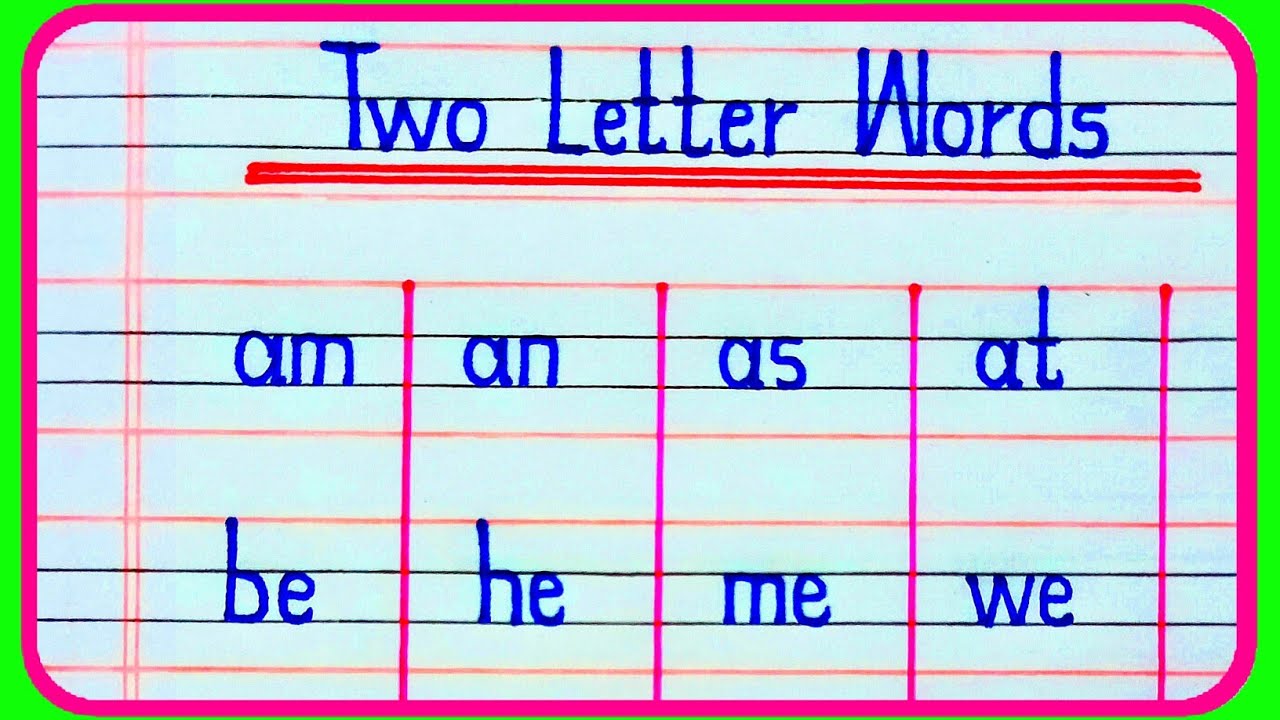 Two Letter Words
am an as at
be he me we